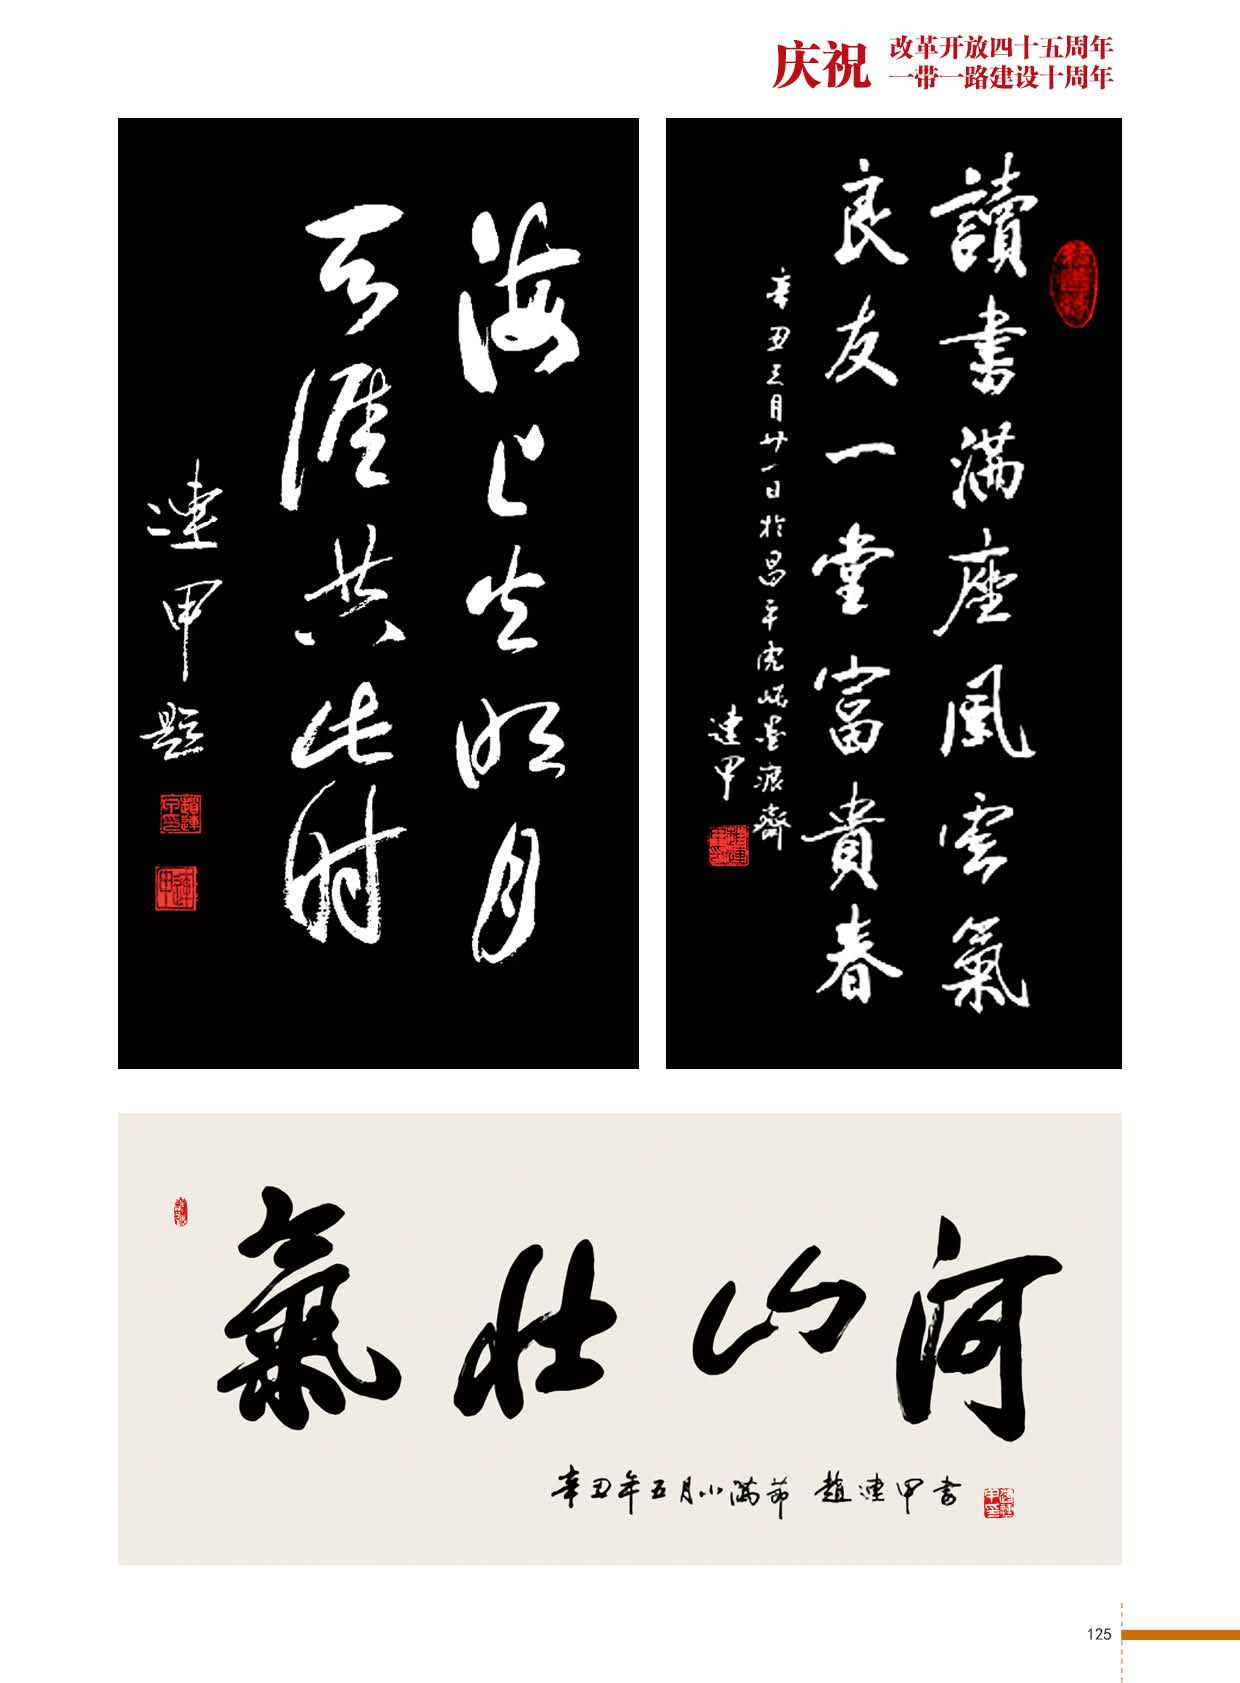 庆祝
改革开放四十五周年
一带一路建设十周年
海上生明月
天涯共此时
連甲題
讀書滿座風雲氣
良友一堂富貴春
辛丑三月廿一日於昌平虎峪墨痕齋
連甲
河山壯氣
辛丑年五月小滿節 趙連甲書
125